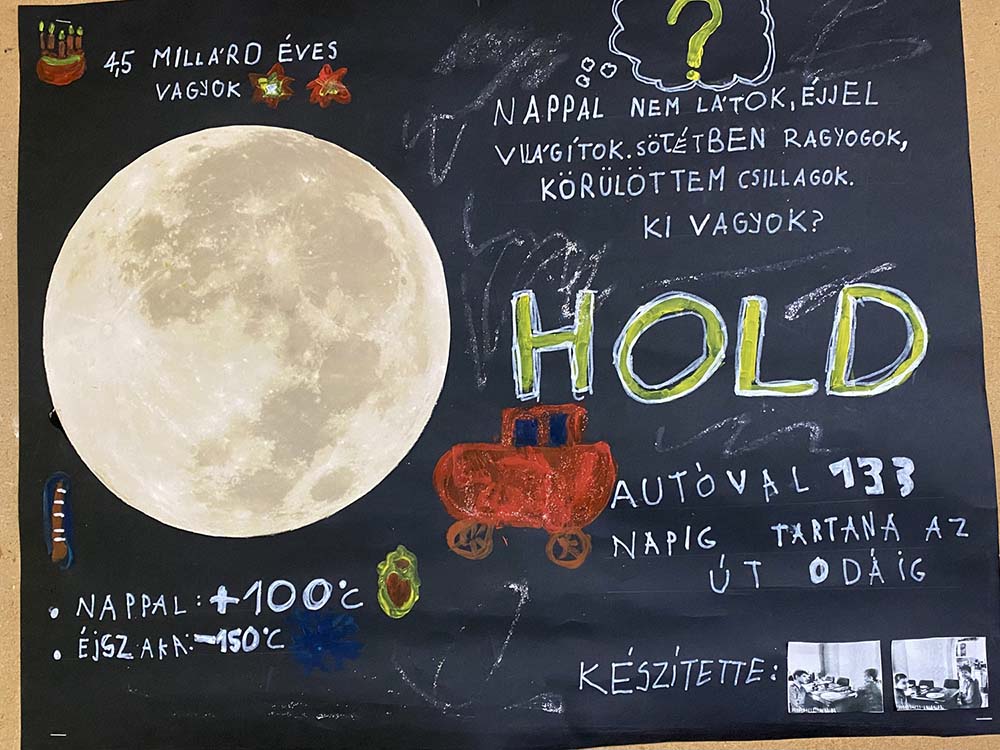 4,5 MILLIÁRD ÉVES
VAGYOK
?
NAPPAL NEM LÁTOK, ÉJJEL
VILÁGÍTOK. SÖTÉTBEN RAGYOGOK,
KÖRÜLÖTTEM CSILLAGOK.
KI VAGYOK?
HOLD
AUTÓVAL 133
NAPIG TARTANA AZ
ÚT ODÁIG
• NAPPAL: +100°C
• ÉJSZAKA: -150°C
KÉSZÍTETTE: